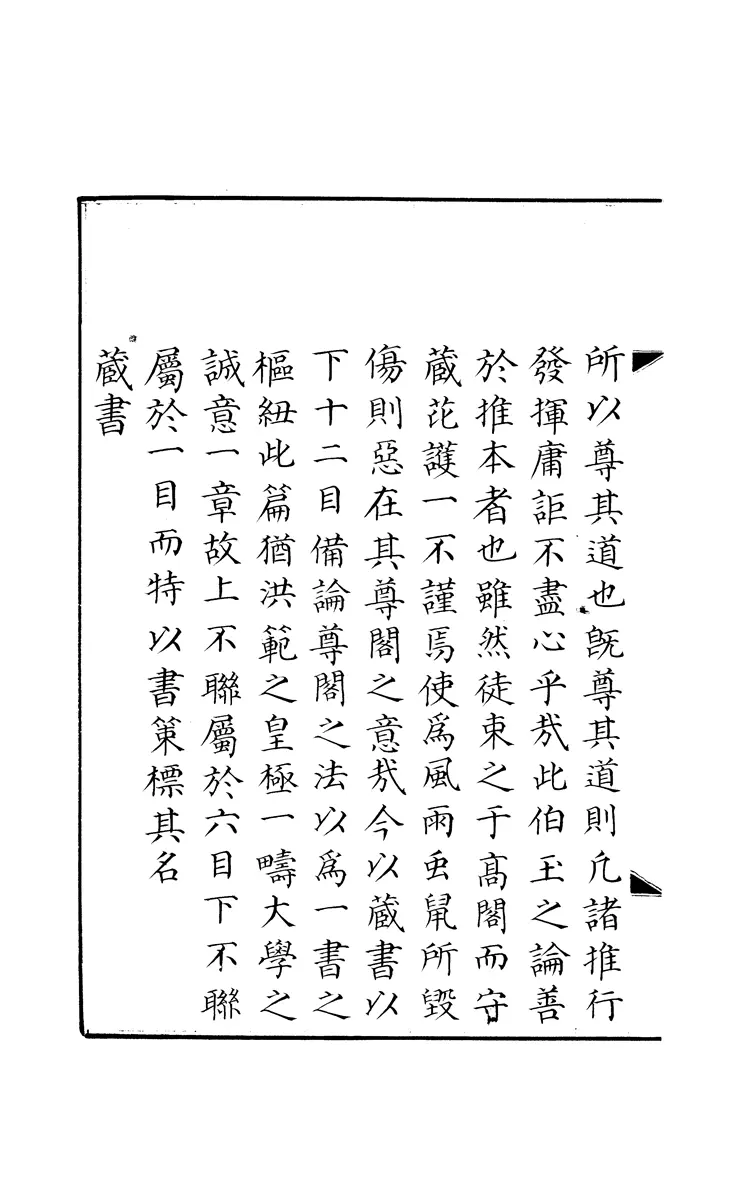 所以尊其道也旣尊其道則凡諸推行
發揮庸詎不盡心乎㢤此伯玉之論善
於推本者也雖然徒束之于高閣而守
蔵芘護一不謹焉使爲風雨䖝鼠所毀
傷則惡在其尊閣之意㢤今以蔵書以
下十二目備論尊閣之法以爲一書之
樞紐此篇猶洪範之皇極一疇大學之
誠意一章故上不聯屬於六目下不聯
屬於一目而特以書策標其名
蔵書